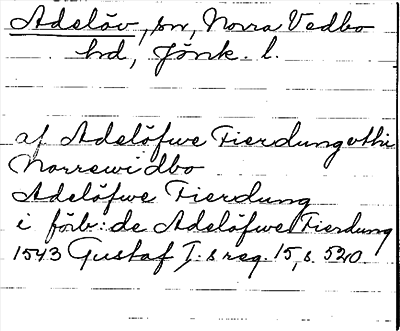 Adelöv, sn, Norra Vedbo
hd, Jönk. l.
af Adelöfwe Fierdung vthi
Norrewidbo
Adelöfwe Fierdung
i förb: de Adelöfwe Fierdung
1543 Gustaf I:s reg. 15, s. 520.